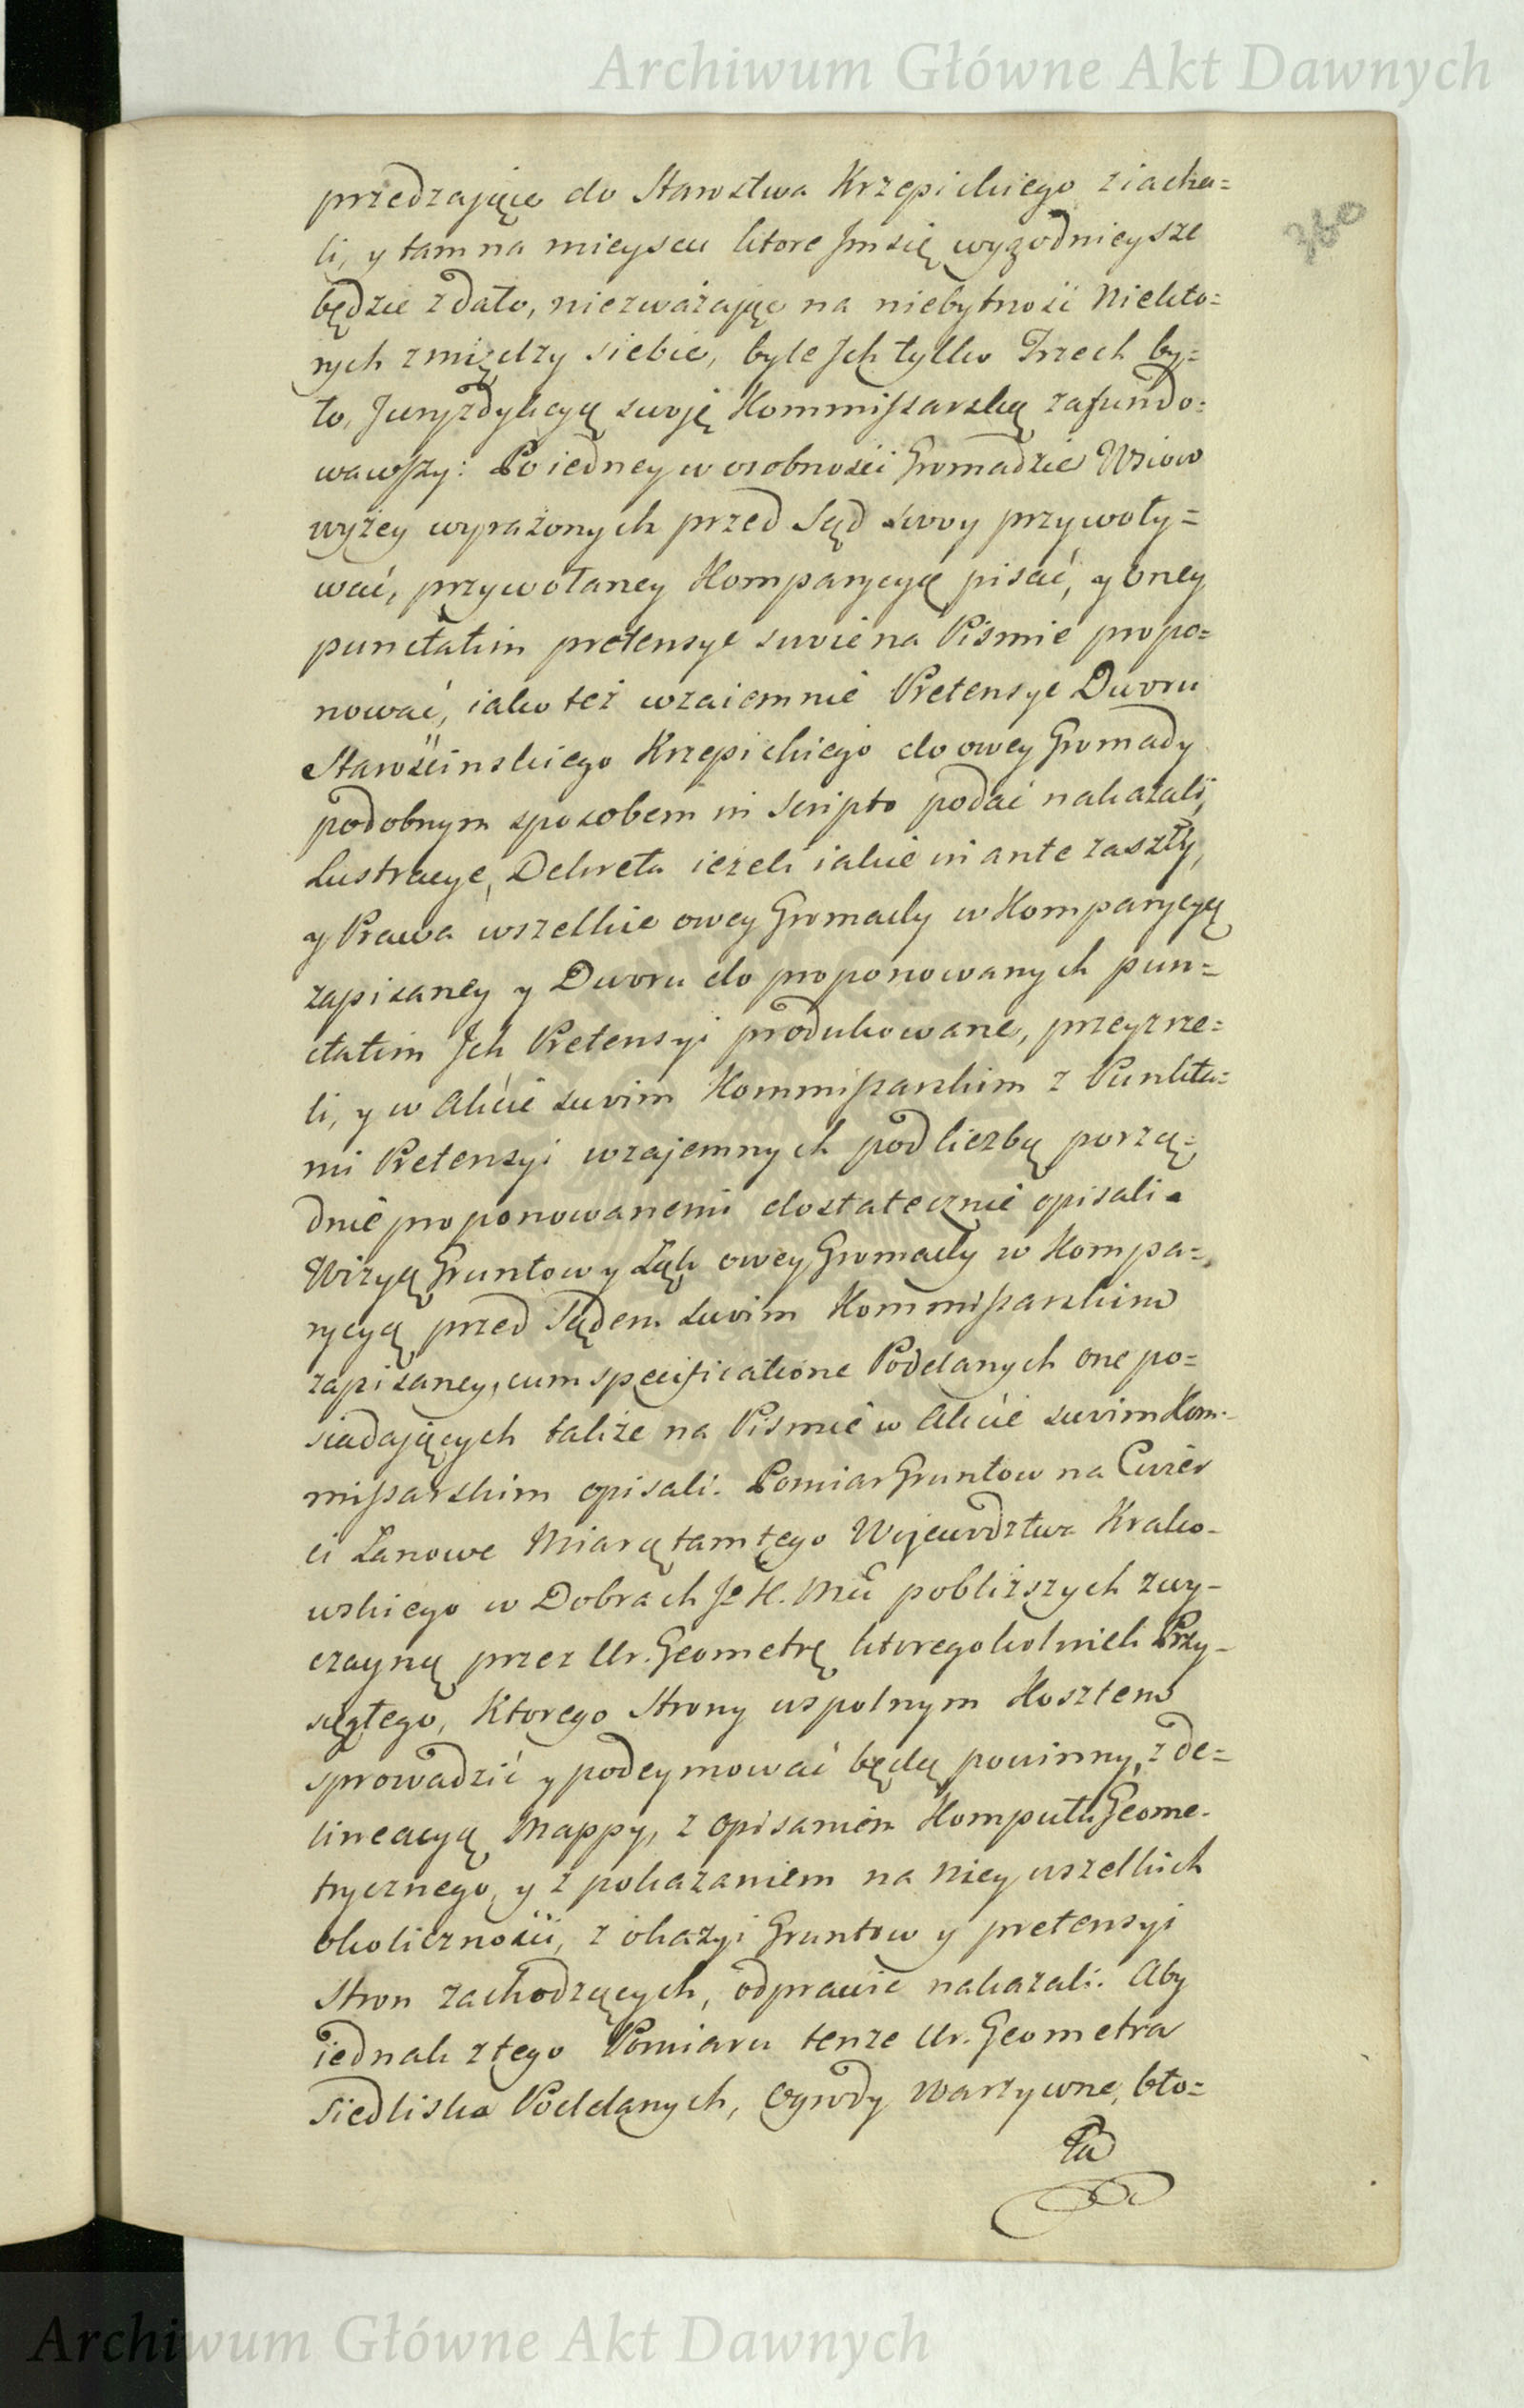 Archiwum Główne Akt Dawnych
przedzające do Starostwa Krzepickiego ziacha=
li, y tam na mieyscu ktore Jm się wygodnieysze
będzie zdało, niezważając na niebytność Niekto=
rych zmiędzy siebie, byle Jch tylko Trzech by=
ło, Juryzdykcyą swoję Kommissarską zafundo=
wawszy: Po iedney w osobności Gromadzie Wsiow
wyżey wyrażonych przed Sąd swoy przywoły=
wać, przywołaney Komparycyę pisać, y oney
punctatim pretensye swoie na Piśmie propo=
nować, iako też wzaiemnie Pretensye Dworu
Starościnskiego Krzepickiego do owey Gromady
podobnym sposobem in Scripto podać nakazali,
Lustracye, Dekreta ieżeli iakie in ante zaszły,
y Prawa wszelkie owey Gromady w Komparycyą
zapisaney y Dworu do proponowanych pun=
ctatim Jch Pretensyi produkowane, przeyrze=
li, y w Akcie swoim Kommissarskim z Punkta=
mi Pretensyi wzajemnych pod liczbą porzą=
dnie proponowanemi dostatecznie opisali.
Wizyą Gruntow y Łąk owey Gromady w Kompa=
rycyą przed Sądem swoim Kommissarskim
zapisaney, cum specificatione Poddanych one po=
siadających także na Piśmie w Akcie swoim Kom=
missarskim opisali. Pomiar Gruntow na Cwier
ci Łanowe Miarą tamtego Wojewodztwa Krako=
wskiego w Dobrach JK. Mci pobliższych zwy=
czayną przez Ur. Geometrę ktoregokolwiek Przy=
sięgłego, Ktorego Strony wspolnym Kosztem
sprowadzić y podeymować będą powinny, z de=
lineacyą Mappy, z opisaniem Komputu Geome=
trycznego, y z pokazaniem na niey wszelkich
okoliczności, z okazyi Gruntow y pretensyi
Stron zachodzących, odprawić nakazali. Aby
iednak z tego Pomiaru tenże Ur. Geometra
Siedliska Poddanych, Ogrody Warzywne, bło=
ta
Archiwum Główne Akt Dawnych